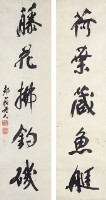 荷葉藏魚艇
藤花拂釣磯